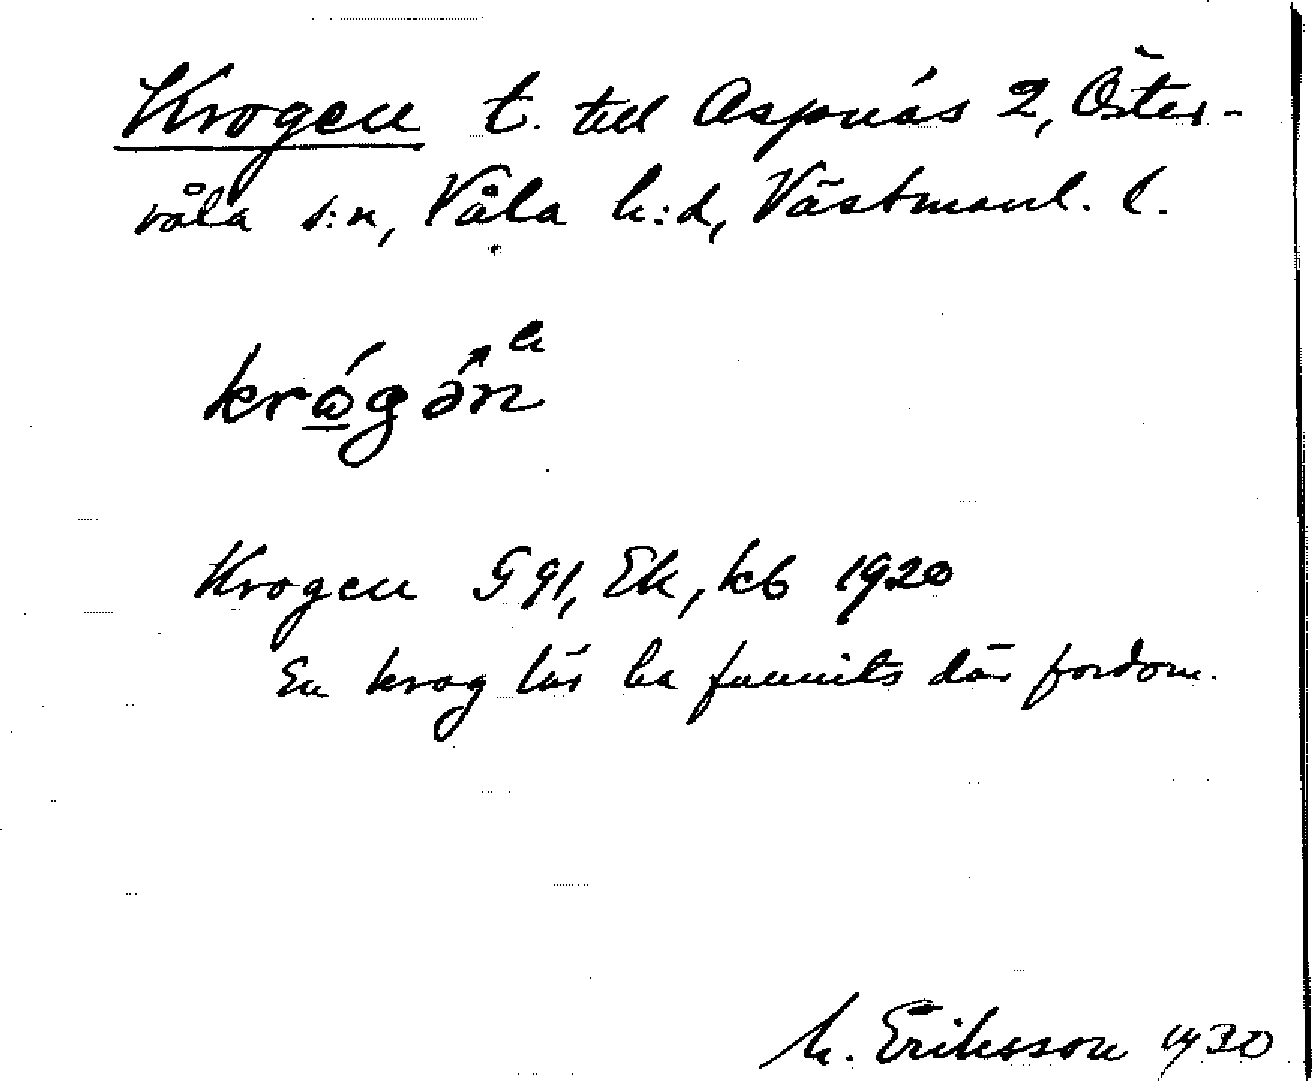 Krogen t. till Aspnäs 2, Öster-
våla s:n, Våla h:d, Västmanl. l.
krógən
Krogen G 91, Ek, kb 1920
En krog lär ha funnits där fordom.
M. Eriksson 1930